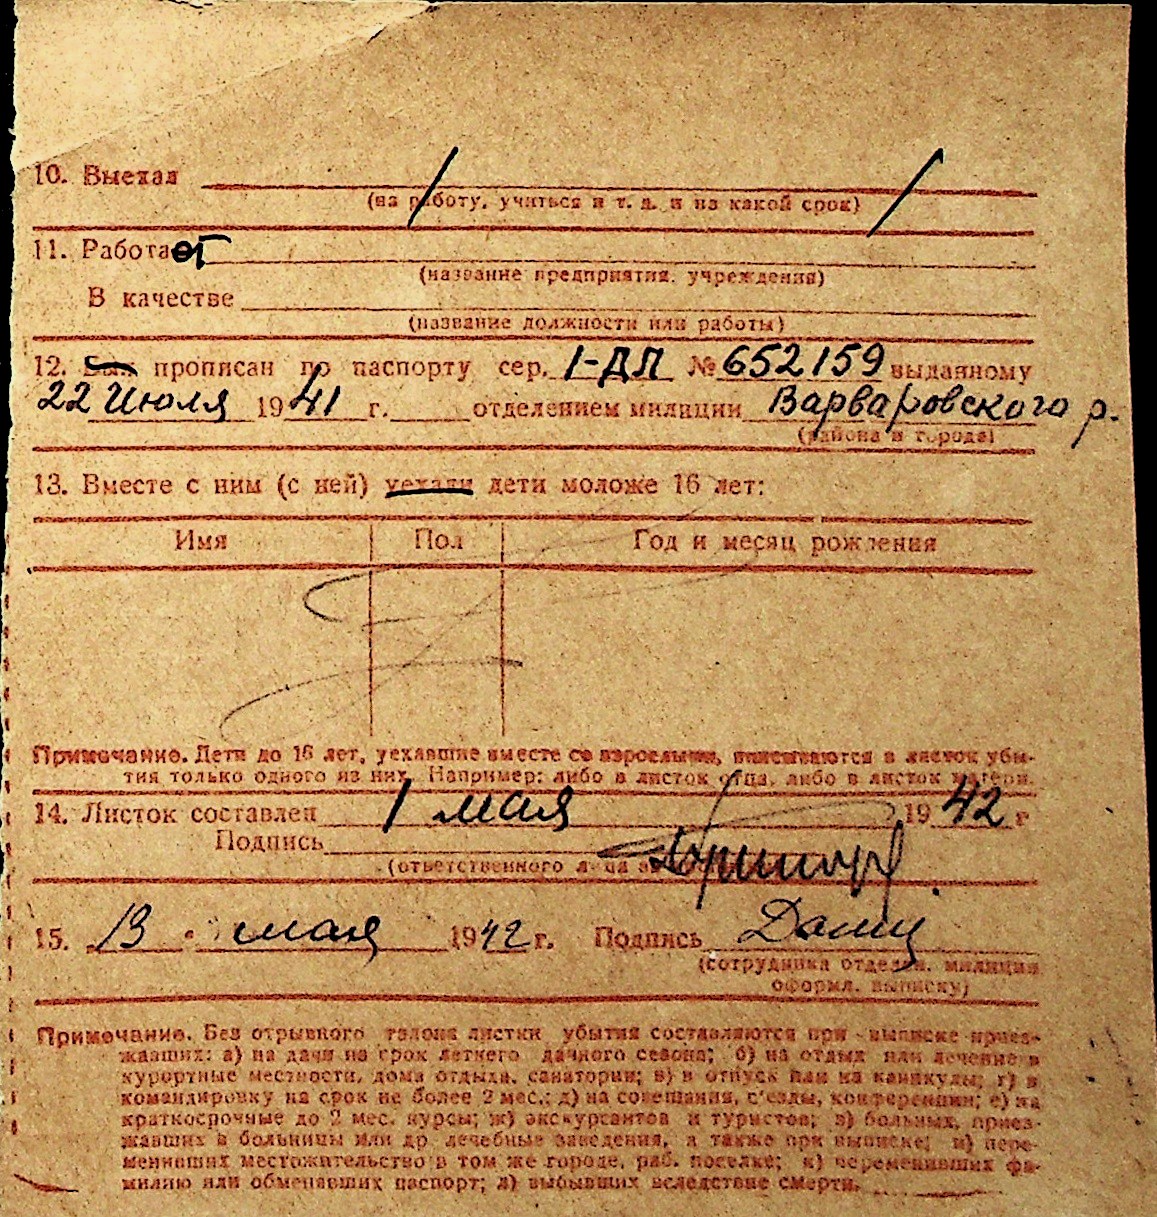 10. Выехал
(на работу, учиться и т. д. и на какой срок)
11. Работает
(название предприятия, учреждения)
В качестве
(название должности или работы)
12. прописан по паспорту сер. 1-ДЛ № 652159 выданному
22 Июля 1941 г. отделением милиции Варваровского р.
(района и города)
13. Вместе с ним (с ней) уехали дети моложе 16 лет:
Имя Пол Год и месяц рождения
Примечание. Дети до 16 лет, уехавшие вместе со взрослыми, вписываются в листок убы-
тия только одного из них. Например: либо в листок отца, либо в листок матери.
14. Листок составлен 1 мая 1942 г
Подпись
(ответственного лица
15. 13 мая 1942 г. Подпись
(сотрудника отделен. милиции
оформл. выписку)
Примечание. Без отрывного талона листки убытия составляются при выписке приез-
жавших: а) на дачи на срок летнего дачного сезона; б) на отдых или лечение в
курортные местности, дома отдыха, санатории; в) в отпуск или на каникулы; г) в
командировку на срок не более 2 мес.; д) на совещания, с'езды, конференции; е) на
краткосрочные до 2 мес. курсы; ж) экскурсантов и туристов; з) больных, приез-
жавших в больницы или др. лечебные заведения, а также при выписке; и) пере-
менивших местожительство в том же городе, раб. поселке; к) переменивших фа-
милию или обменявших паспорт; л) выбывших вследствие смерти.